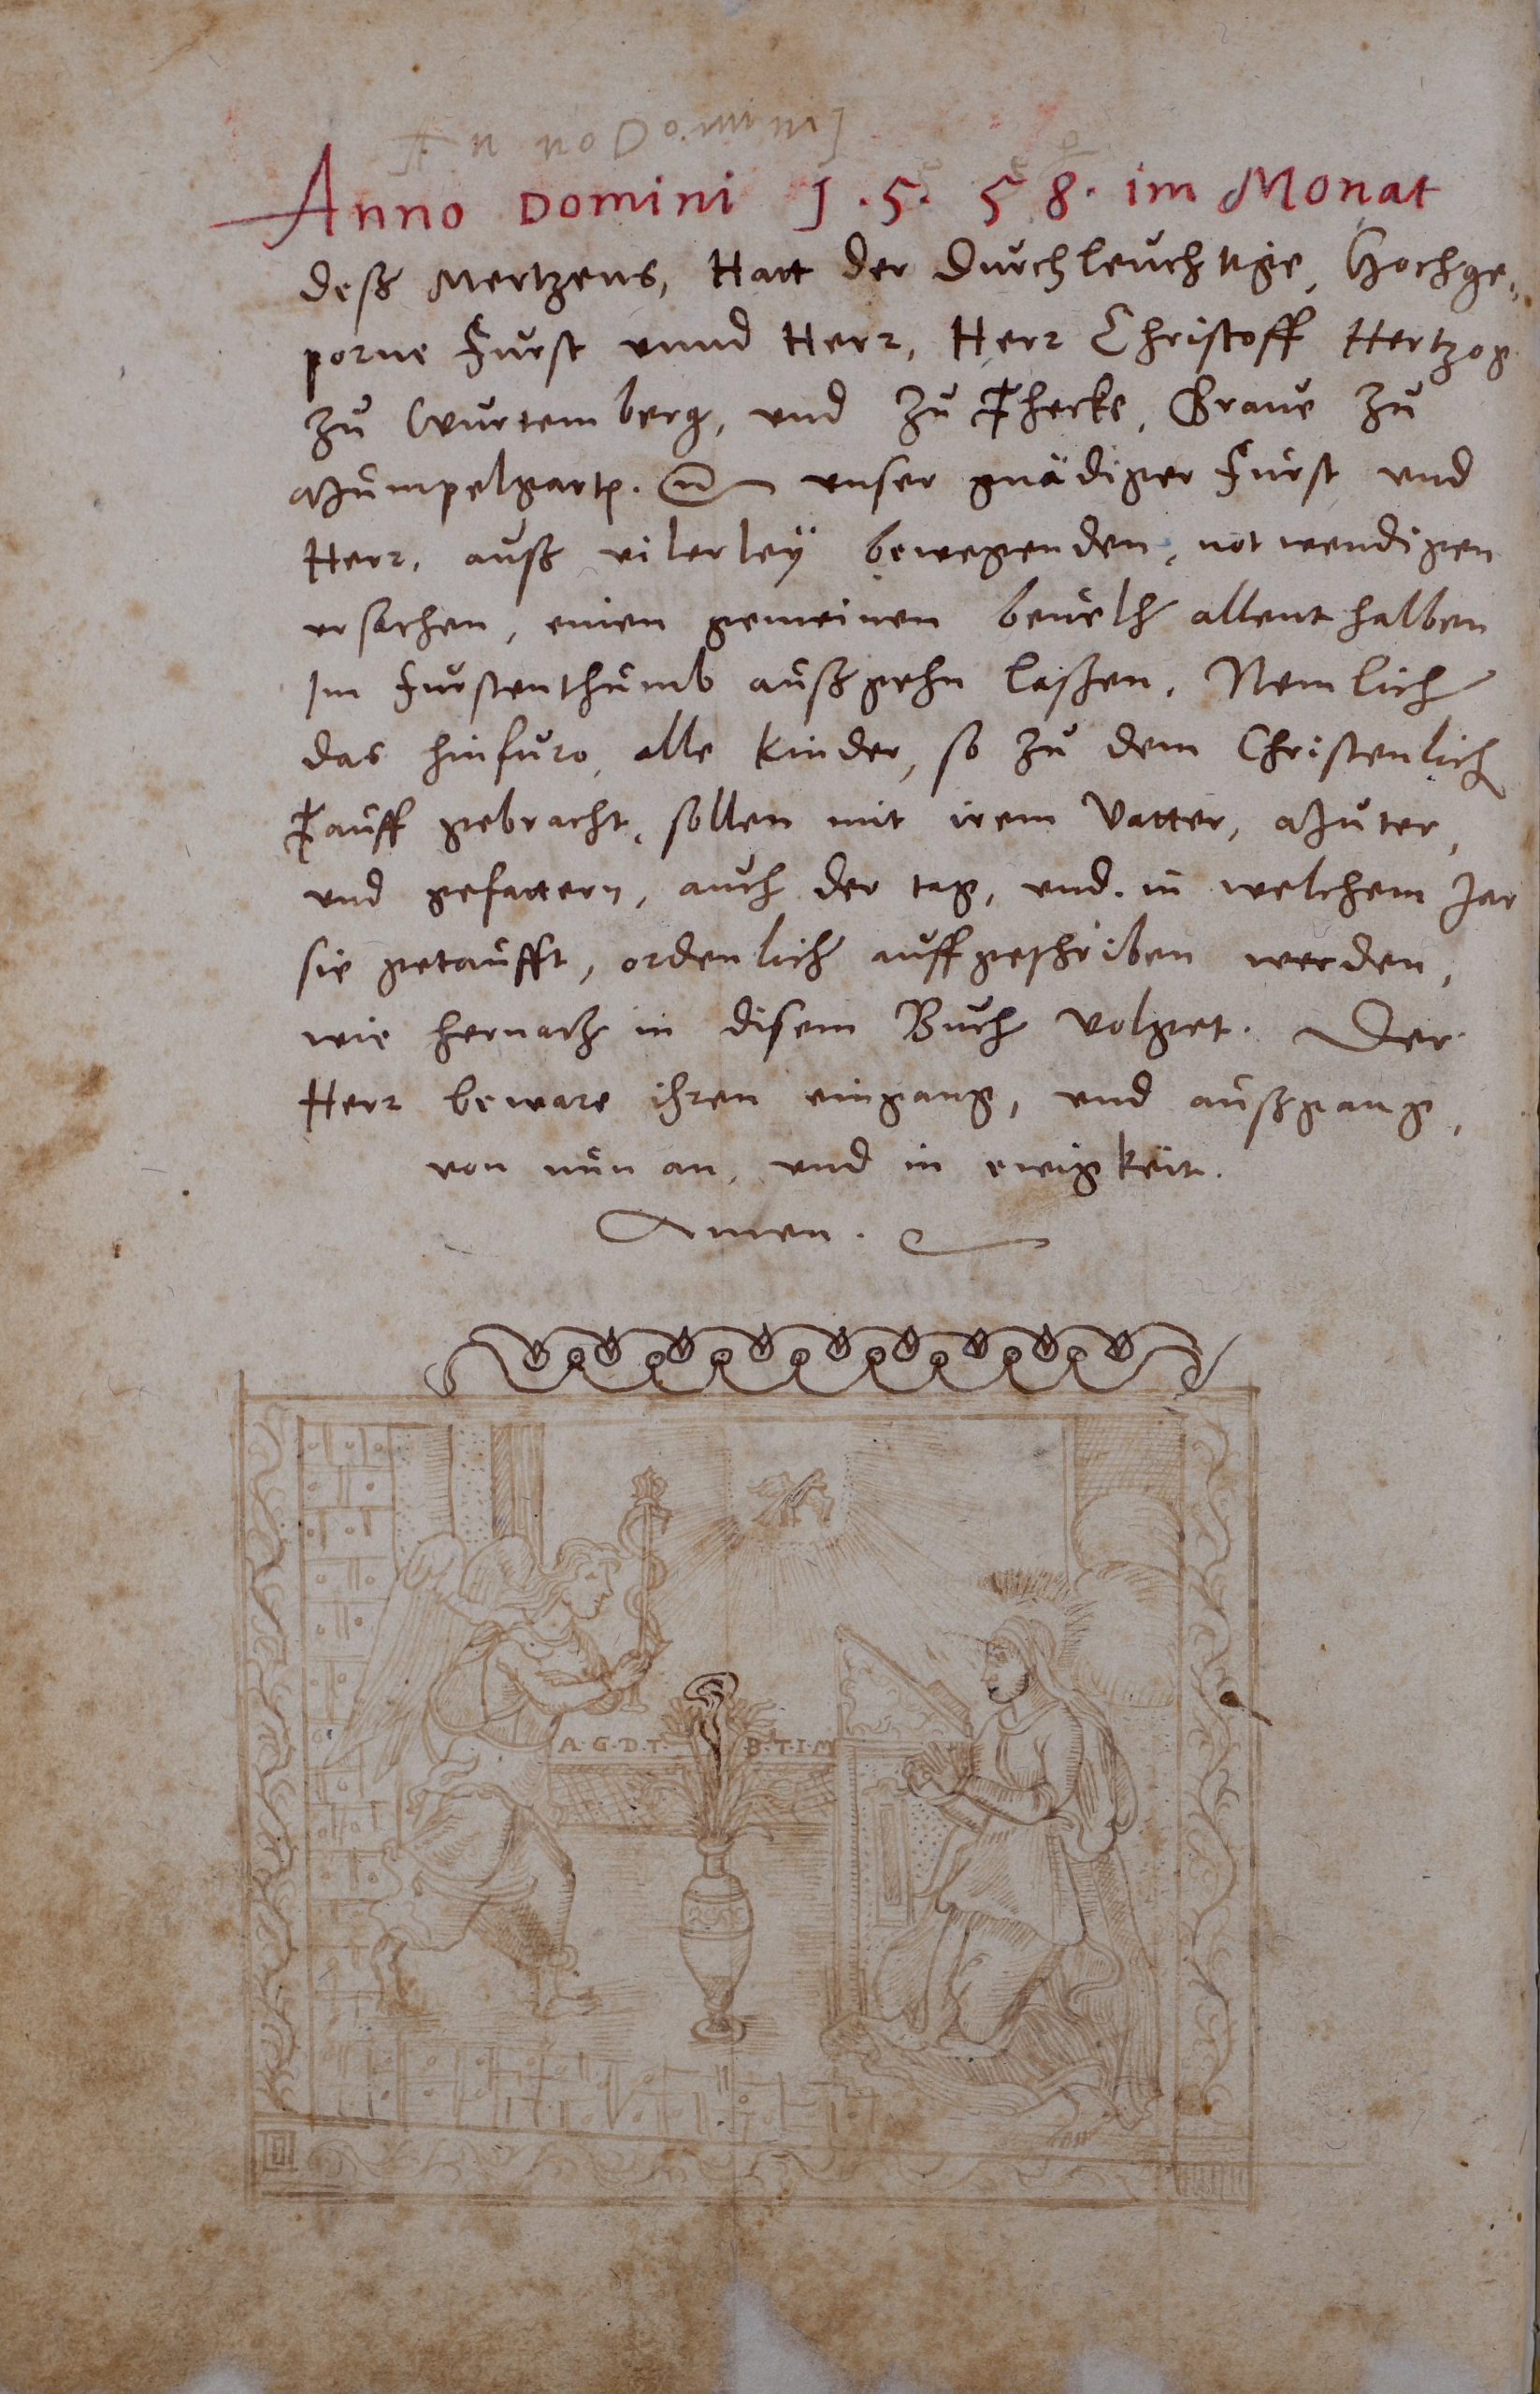 An no Domini J
Anno Domini J.5.58. im Monat
deß Mertzens, Hatt der Durchleuchtige, Hochge„
porne Fürst unnd Herr, Herr Christoff Hertzog
zu Wurtemberg, und zu Thecke, Grave zu
Mümpelgartt. unser gnädiger Fürst und
Herr, auß vilerleÿ bewegenden, notwendigen
ursachen, einen gemeinen bevelch allenthalben
Im Furstenthumb außgehn laßen, Nemlich
das hinfuro, alle Kinder, so zu dem Christenlich
Tauff gebracht, sollen mit irem Vatter, Muter,
und gefattern, auch der tag, und in welchem Jar
sie getaufft, ordenlich auffgeschriben werden,
wie hernach in disem Buch volget. Der
Herr beware ihren eingang, und außgang,
von nun an, und in ewigkeit.
Amen.
A.G.D.T. B.T.I.M